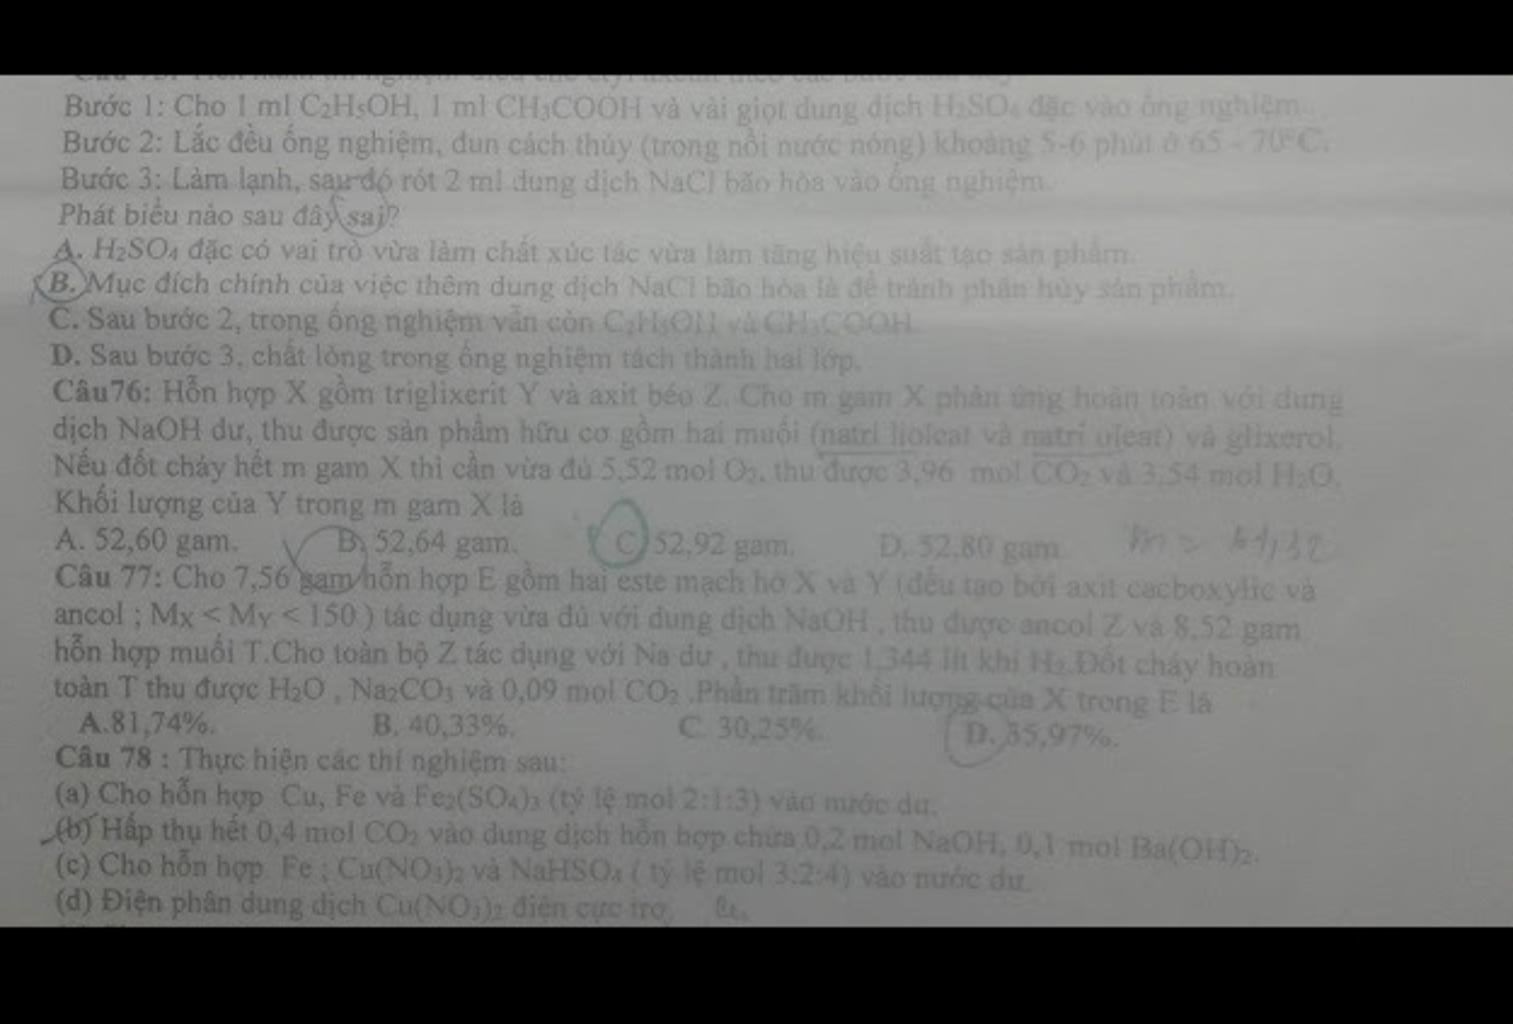 Bước 1: Cho 1 ml C₂H₅OH, 1 ml CH₃COOH và vài giọt dung dịch H₂SO₄ đặc vào ống nghiệm.
Bước 2: Lắc đều ống nghiệm, đun cách thủy (trong nồi nước nóng) khoảng 5-6 phút ở 65 - 70°C.
Bước 3: Làm lạnh, sau đó rót 2 ml dung dịch NaCl bão hòa vào ống nghiệm.
Phát biểu nào sau đây sai?
A. H₂SO₄ đặc có vai trò vừa làm chất xúc tác vừa làm tăng hiệu suất tạo sản phẩm.
B. Mục đích chính của việc thêm dung dịch NaCl bão hòa là để tránh phân hủy sản phẩm.
C. Sau bước 2, trong ống nghiệm vẫn còn C₂H₅OH và CH₃COOH.
D. Sau bước 3, chất lỏng trong ống nghiệm tách thành hai lớp.
Câu76: Hỗn hợp X gồm triglixerit Y và axit béo Z. Cho m gam X phản ứng hoàn toàn với dung
dịch NaOH dư, thu được sản phẩm hữu cơ gồm hai muối (natri lioleat và natri oleat) và glixerol.
Nếu đốt cháy hết m gam X thì cần vừa đủ 5,52 mol O₂, thu được 3,96 mol CO₂ và 3,54 mol H₂O.
Khối lượng của Y trong m gam X là
A. 52,60 gam. B. 52,64 gam. C. 52,92 gam. D. 52,80 gam
Câu 77: Cho 7,56 gam hỗn hợp E gồm hai este mạch hở X và Y (đều tạo bởi axit cacboxylic và
ancol ; Mx < My < 150 ) tác dụng vừa đủ với dung dịch NaOH , thu được ancol Z và 8,52 gam
hỗn hợp muối T.Cho toàn bộ Z tác dụng với Na dư , thu được 1,344 lít khí H₂.Đốt cháy hoàn
toàn T thu được H₂O , Na₂CO₃ và 0,09 mol CO₂ .Phần trăm khối lượng của X trong E là
A.81,74%. B. 40,33%. C. 30,25%. D. 35,97%.
Câu 78 : Thực hiện các thí nghiệm sau:
(a) Cho hỗn hợp Cu, Fe và Fe₂(SO₄)₃ (tỷ lệ mol 2:1:3) vào nước dư.
(b) Hấp thụ hết 0,4 mol CO₂ vào dung dịch hỗn hợp chứa 0,2 mol NaOH, 0,1 mol Ba(OH)₂.
(c) Cho hỗn hợp Fe ; Cu(NO₃)₂ và NaHSO₄ ( tỷ lệ mol 3:2:4) vào nước dư.
(d) Điện phân dung dịch Cu(NO₃)₂ điện cực trơ